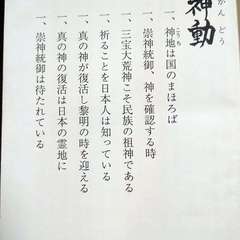 かんどう
神動
一、神地は国のまほろば
こうち
一、崇神統御、神を確認する時
一、三宝大荒神こそ民族の祖神である
一、祈ることを日本人は知っている
一、真の神が復活し黎明の時を迎える
一、真の神の復活は日本の霊地に
一、崇神統御は待たれている